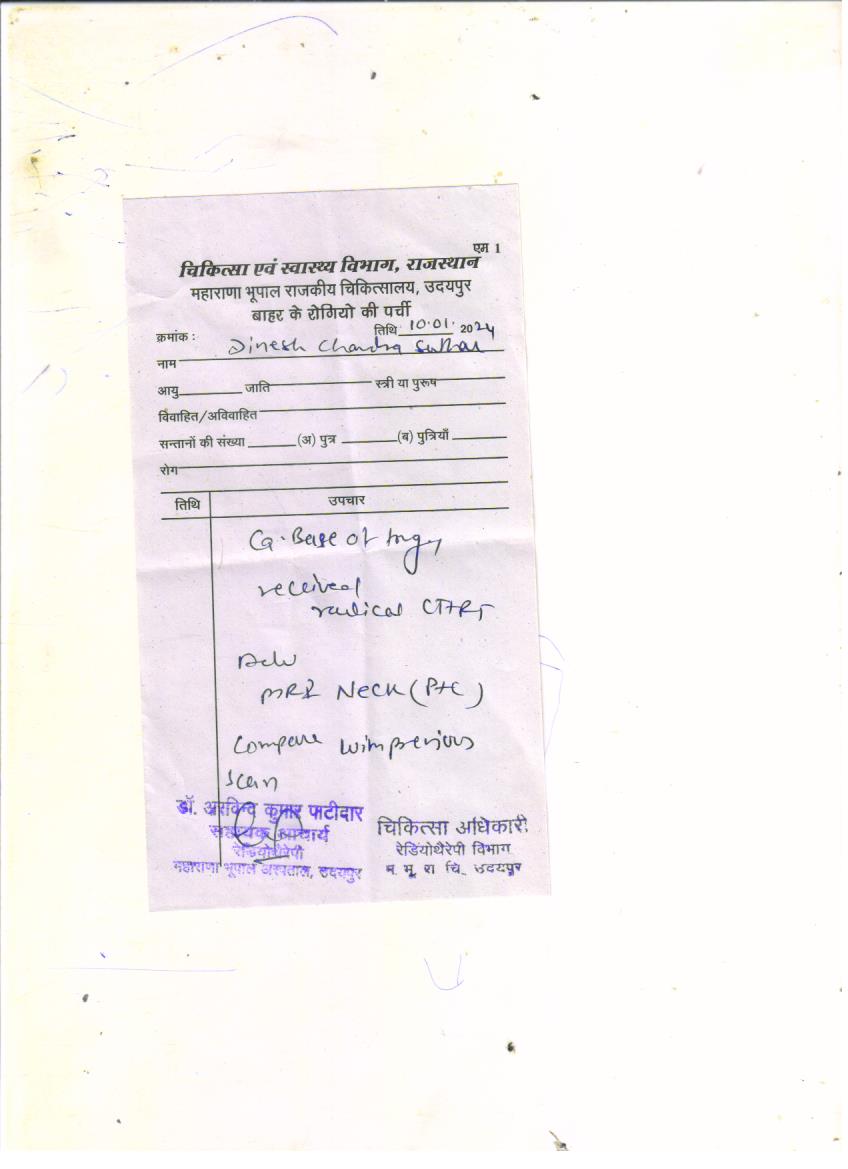 एम 1
चिकित्सा एवं स्वास्थ्य विभाग, राजस्थान
महाराणा भूपाल राजकीय चिकित्सालय, उदयपुर
बाहर के रोगियो की पर्ची
क्रमांक : तिथि 10.01. 2024
नाम Dinesh Chandra Suthar
आयु जाति स्त्री या पुरूष
विवाहित/अविवाहित
सन्तानों की संख्या (अ) पुत्र (ब) पुत्रियाँ
रोग
तिथि उपचार
Ca. Base of
received
radical CT+RT
Adv
MRI Neck (P+C)
Compare with previous
scan
डॉ. अरविन्द कुमार पाटीदार
सहायक आचार्य
रेडियोथैरेपी
महाराणा भूपाल अस्पताल, उदयपुर
चिकित्सा अधिकारी
रेडियोथैरेपी विभाग
म. भू. रा. चि., उदयपुर